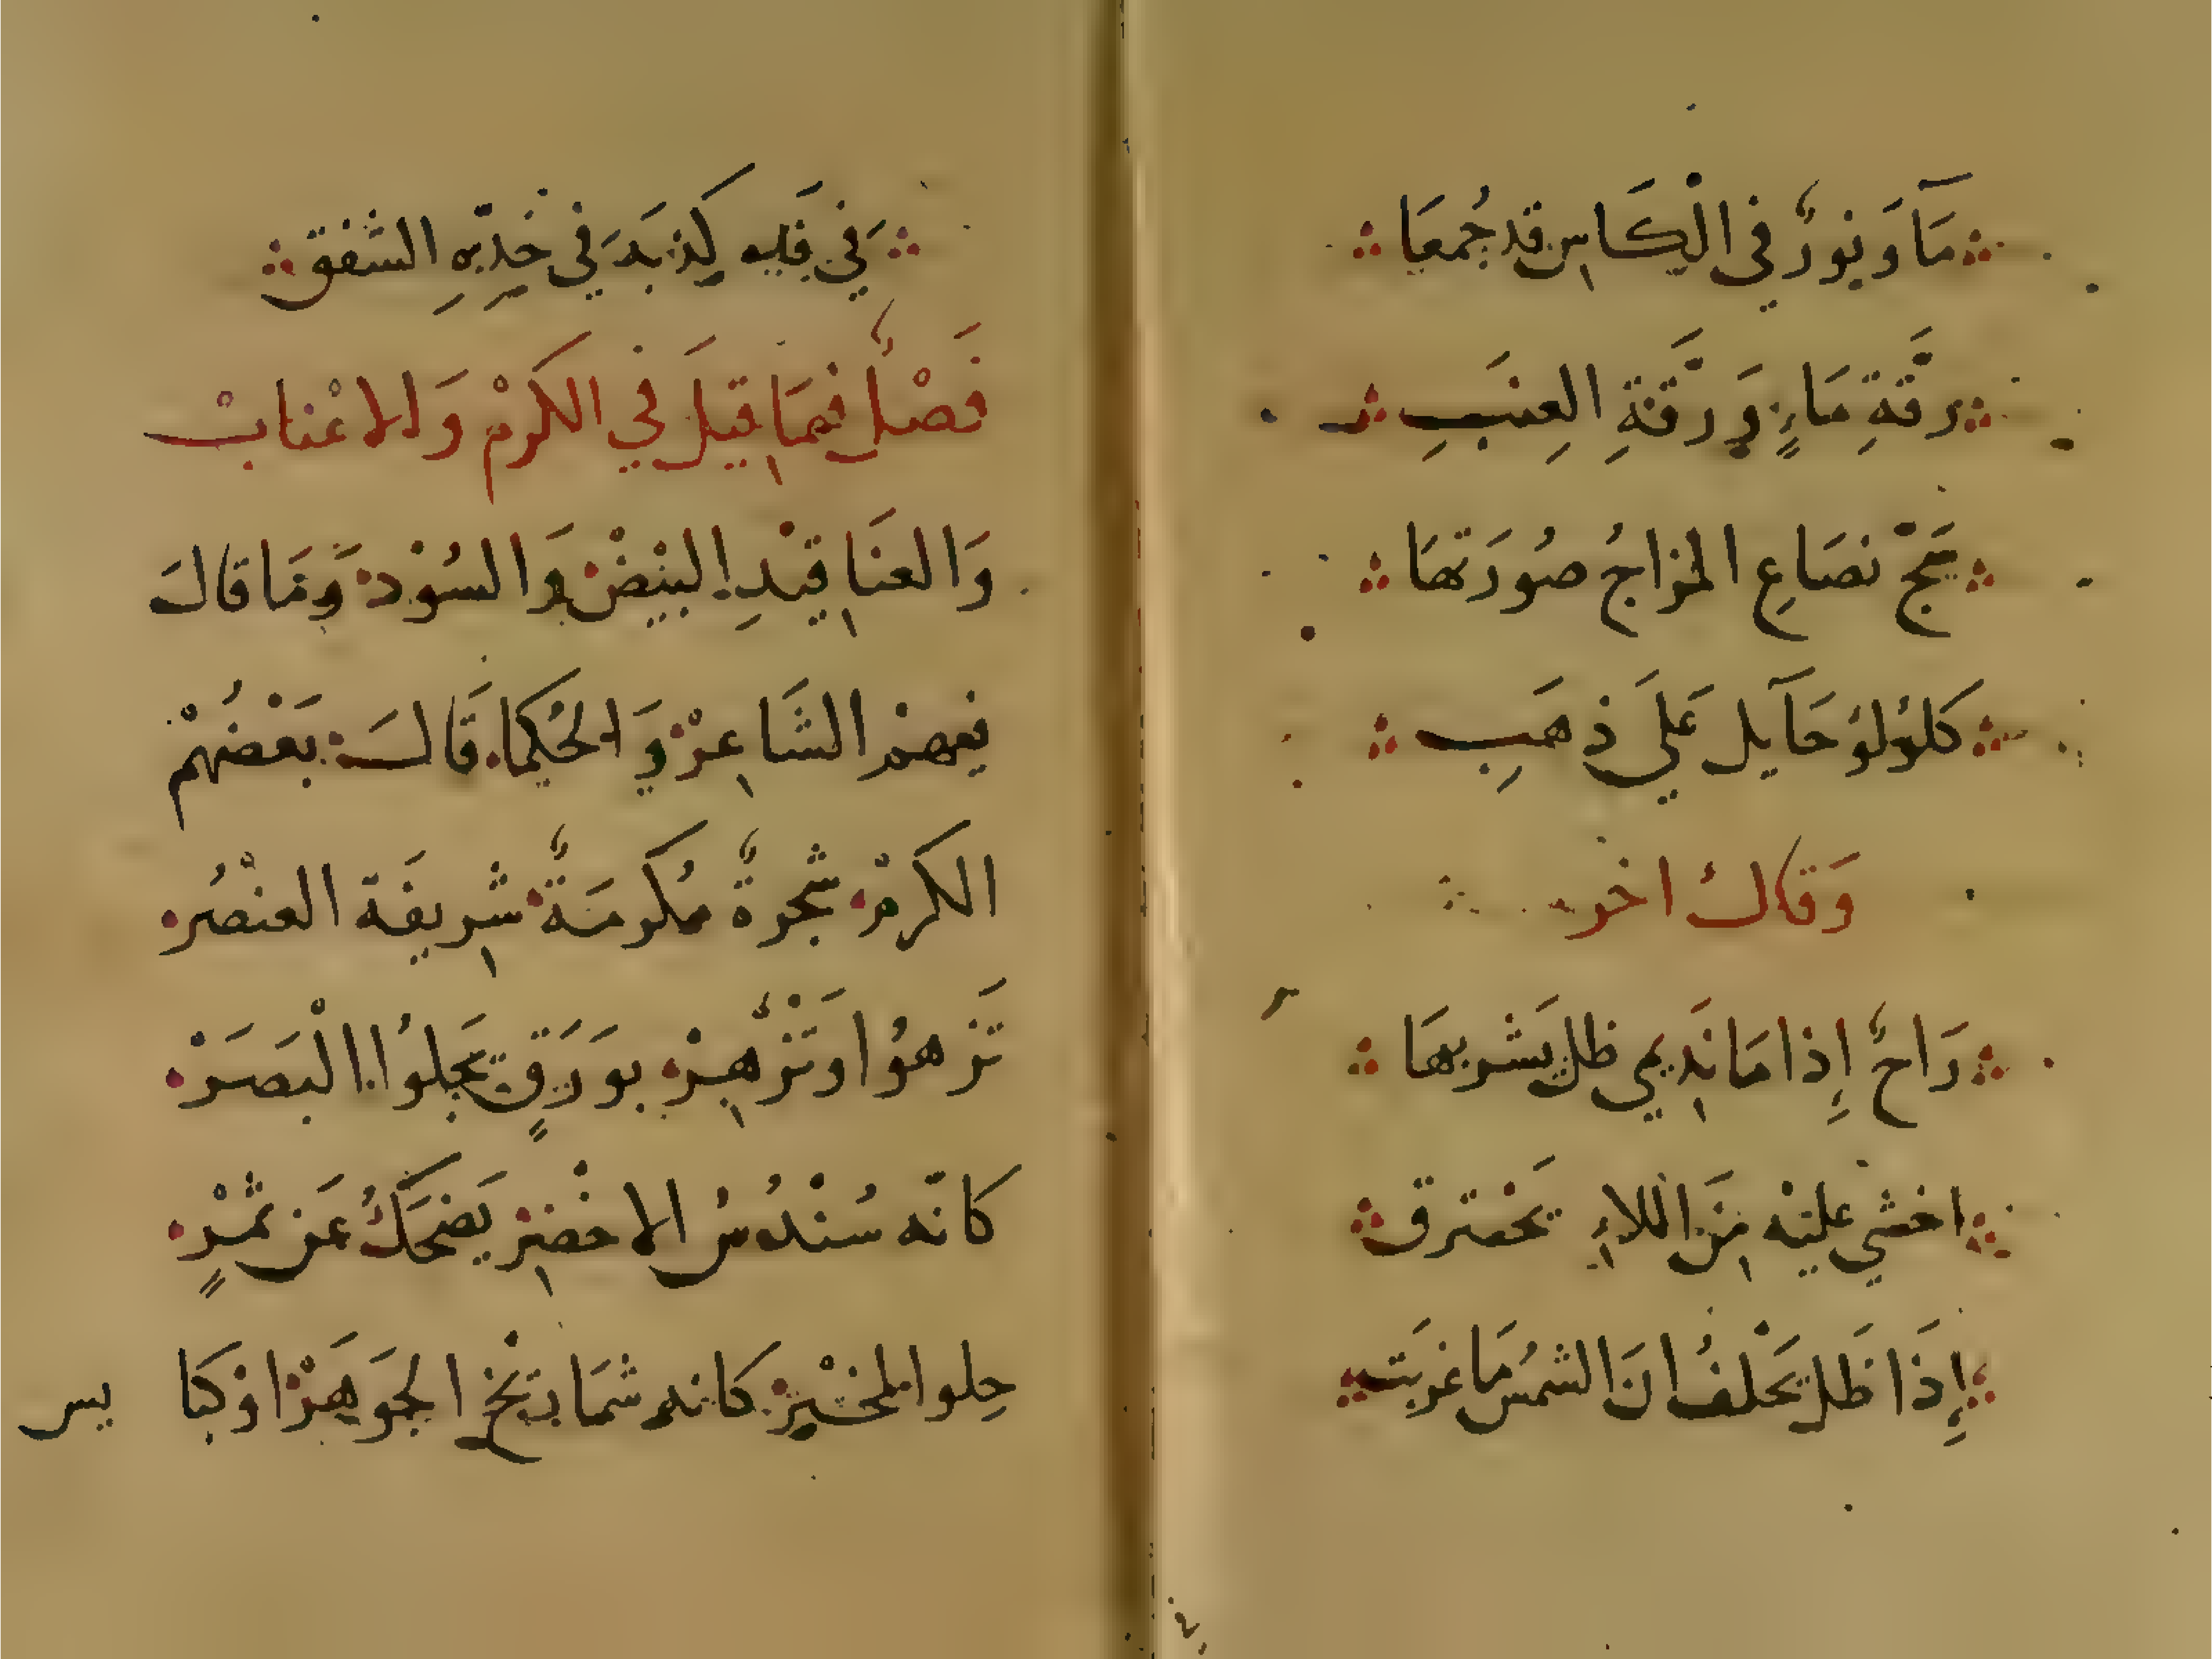 مَآ وَنورٌ في الْكَاسِ قد جُمعَا
رقَّةِ مَاءٍ وَرَقَّةِ العِنَبِ
نصَاعِ المزاجُ صُورَتهَا
كلؤلؤ حَآيل عَلَي ذهَبِ
وَقالُ اخر
رَاحٌ إِذا مَا نَدِيمي ظل يَشربهَا
اخشي عليْه مِنَ اللالاءِ يَحْترق
إِذَا ظَل يَحْلفُ انَ الشمسُ مَا غربَت
في فَيه كذبهَ في خَدِّهِ الشفق
فَصْلٌ فيمَا قيْلَ في الكَرمْ وَالاعْنابْ
وَالعنَاقيْدِ البيْضْ وَالسُوْد وَمَا قالَ
فيهمْ الشَاعرْ وَالحُكيما قَالَ بَعْضُهْم
الكَرمْ شجرةٌ مُكرمَةٌ شريفَة العنْصُر
تَزهوُا وَتَزْهِرْ بورَقٍ يَجلوُا الْبَصَرْ
كانّه سُنْدُسُ الاخْضِرْ يَضحَكُ عَن ثمْرٍ
حِلوا كانه شمَا الجوَهَرْ اوْ كبا
يس